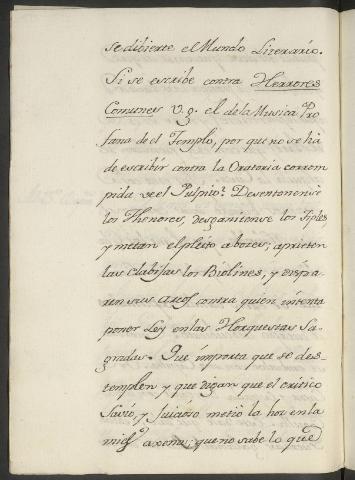 se dibierte el Mundo Literario.
Si se escribe contra Herrores
Comunes V.g. el de la Musica Pro
fana de el Templo, por que no se há
de escribír contra la Oratoria corrom
pida de el Pulpito? Desentonense
los Thenores, desgañitense los Tiples,
y metan el pleito a bozes; aprieten
las clabijas los Biolines, y dispa
ren sus arcos contra quien intenta
poner Ley en las Horquestas Sa
gradas. Que importa que se des
templen y que digan que el critico
Savio, y Juicioso metió la hoz en la
mies axena; que no sabe lo que